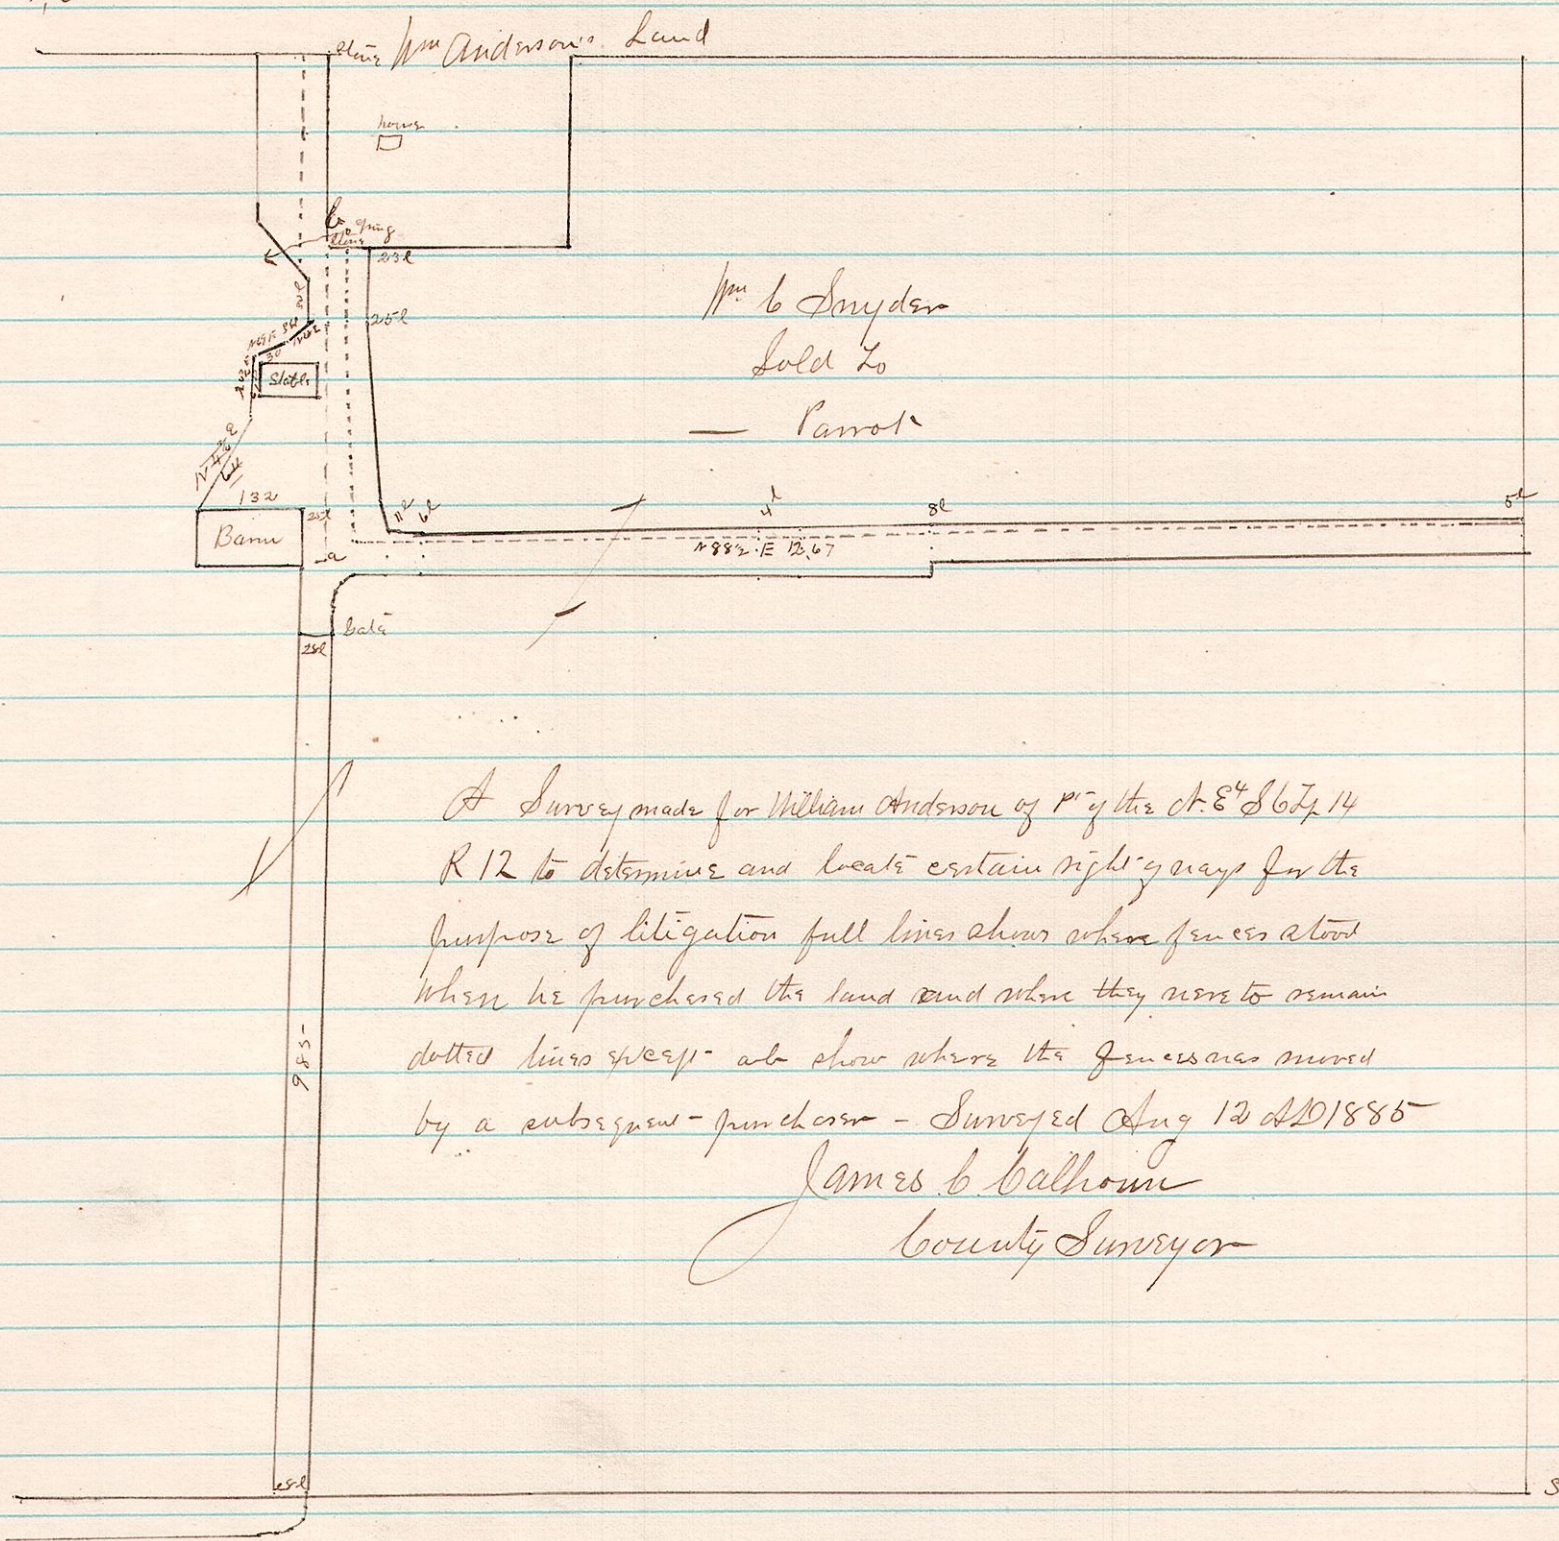 Stone Wm Anderson's Land
house
b
Spring
Stone
23l
25l
Wm C Snyder
Sold To
— Parrot
Stable
30
N 42 E
64
132
25l
Barn
a
11l 6l 4l 8l 5l
N 88½ E 12,67
Gate
25l
985
A Survey made for William Anderson of pt of the N.E 4 S 6 Tp 14
R 12 to determine and locate certain right of ways for the
purpose of litigation full lines shows where fences stood
when he purchased the land and where they were to remain
dotted lines except ab show where the fences was moved
by a subsequent purchaser - Surveyed Aug 12 AD 1885
James C. Calhoun
County Surveyor
S